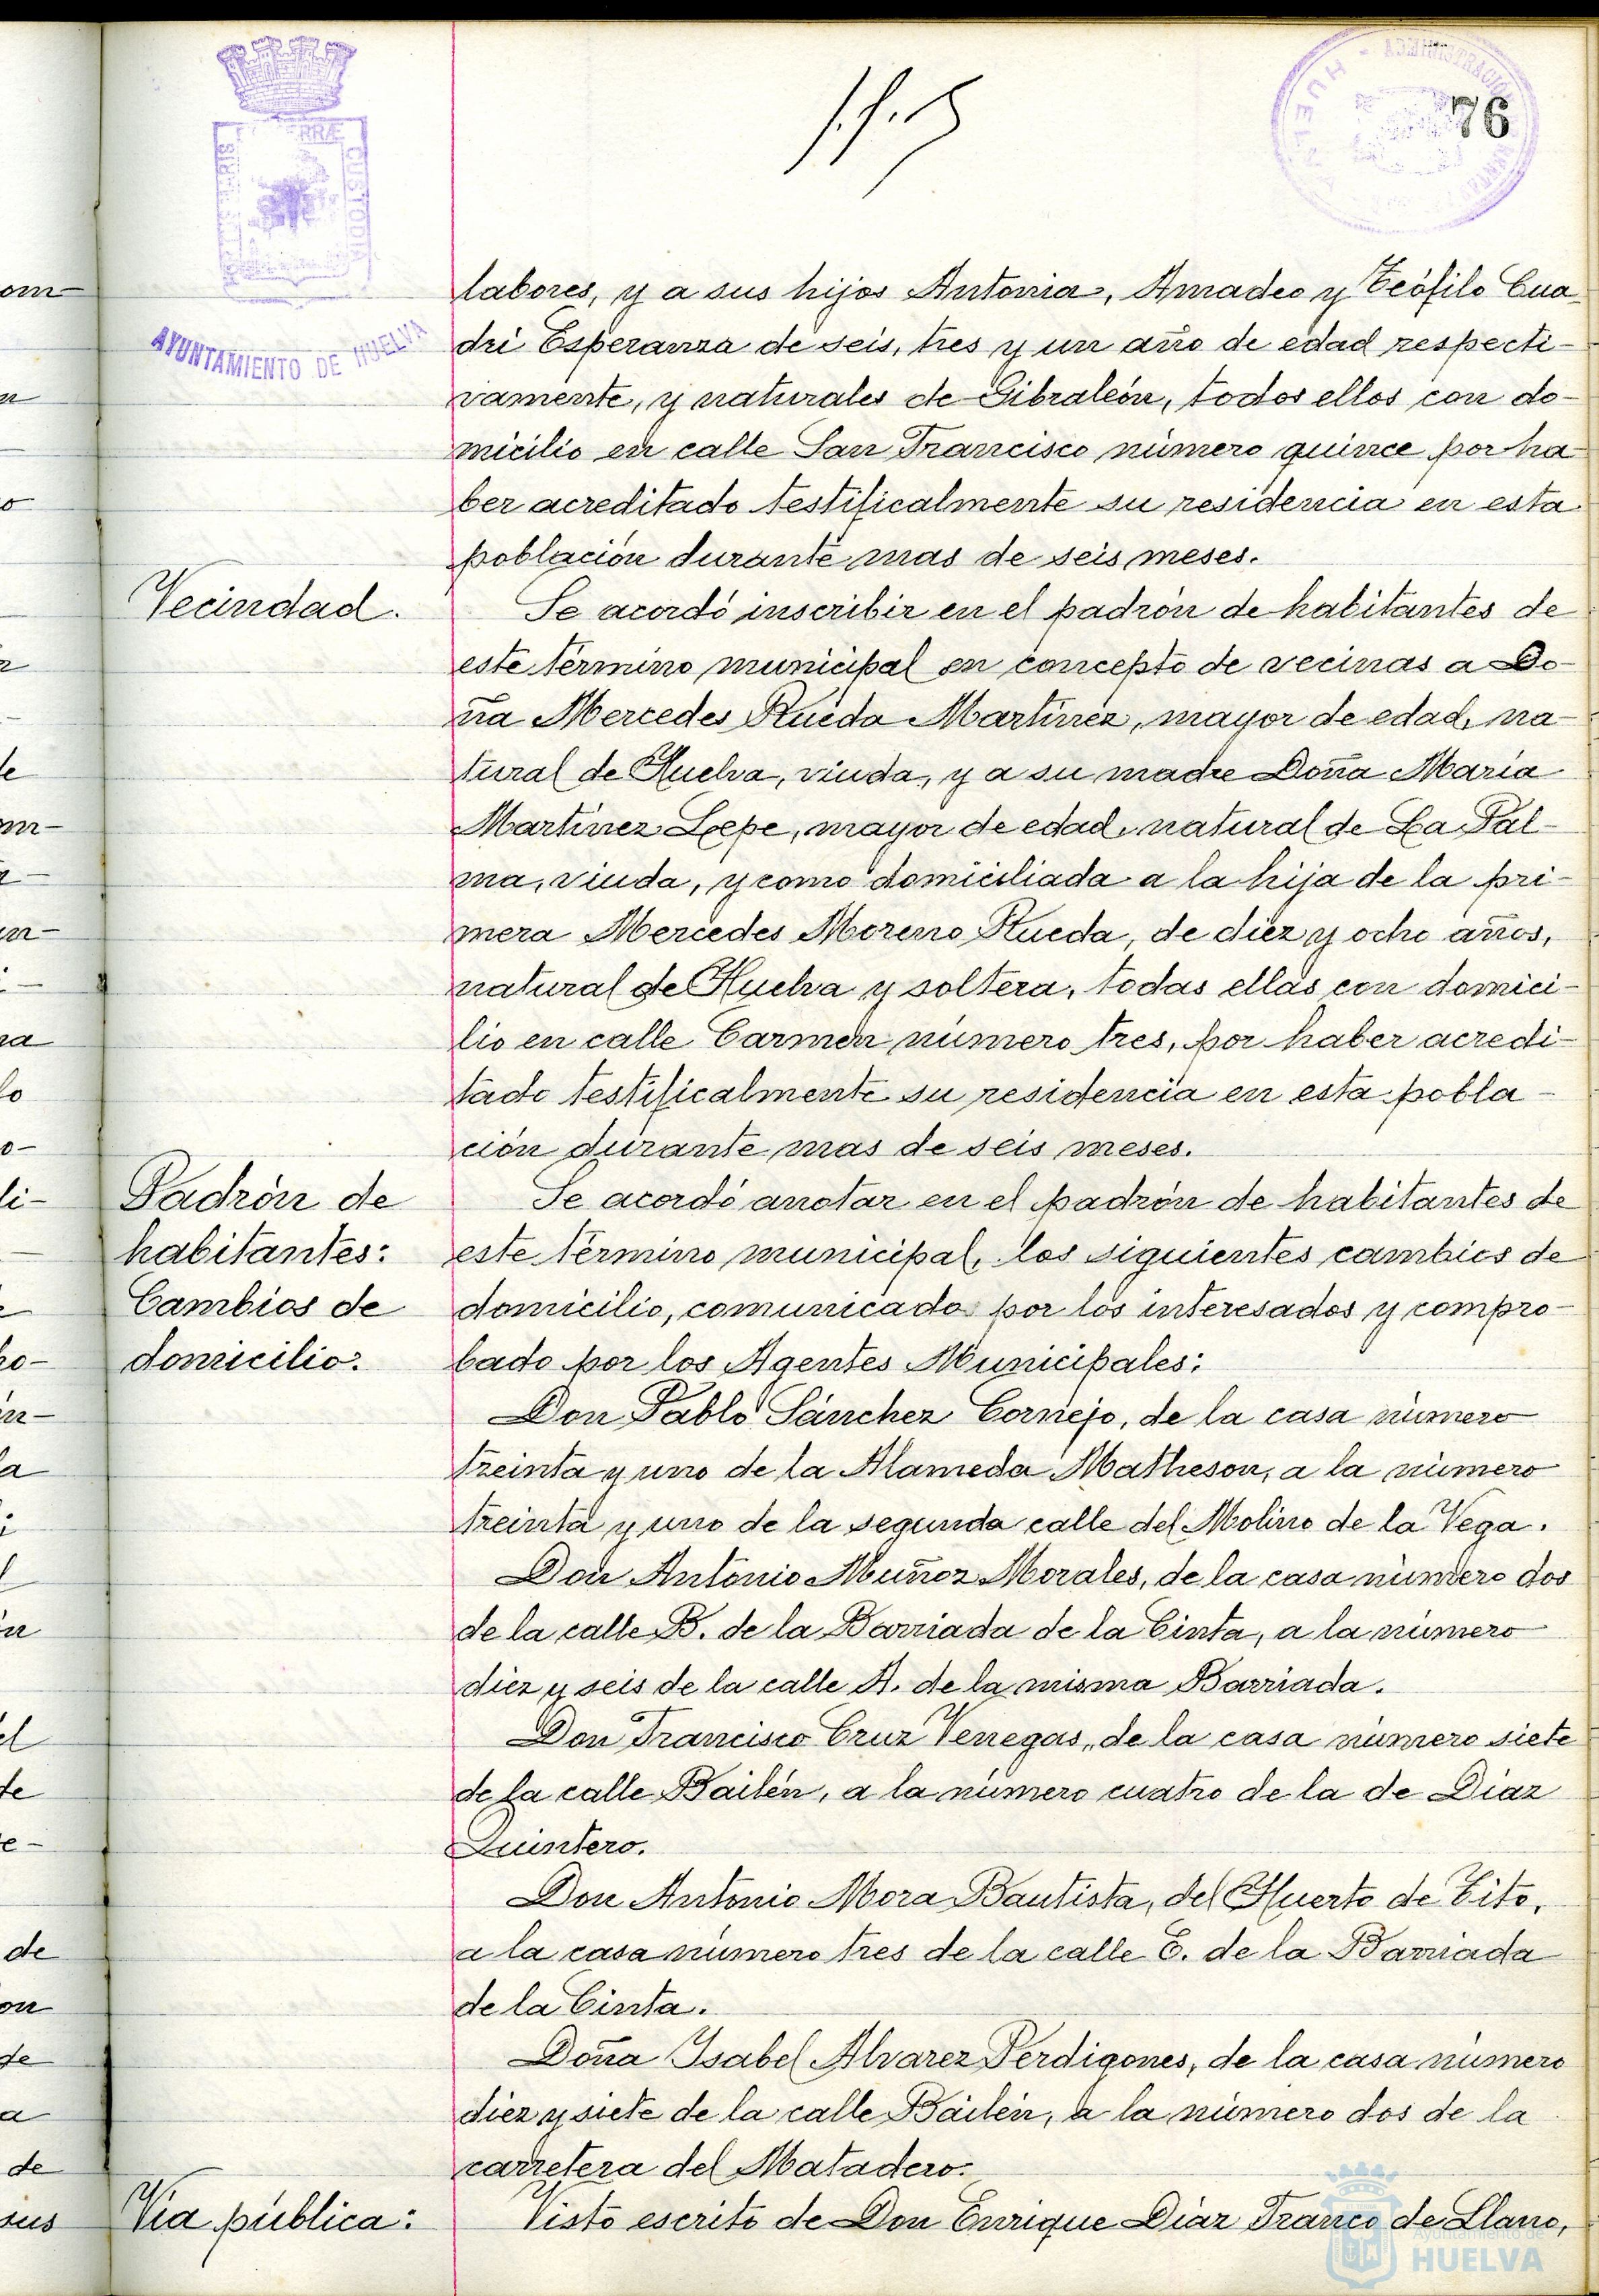 76
AYUNTAMIENTO DE HUELVA
labores, y a sus hijos Antonia, Amadeo y Teófilo Cua-
dri Esperanza de seis, tres y un año de edad respecti-
vamente, y naturales de Gibraleón, todos ellos con do-
micilio en calle San Francisco número quince por ha-
ber acreditado testificalmente su residencia en esta
población durante mas de seis meses.
Vecindad.
Se acordó inscribir en el padrón de habitantes de
este término municipal en concepto de vecinas a Do-
ña Mercedes Rueda Martínez, mayor de edad, na-
tural de Huelva, viuda, y a su madre Doña María
Martínez Lepe, mayor de edad, natural de La Pal-
ma, viuda, y como domiciliada a la hija de la pri-
mera Mercedes Moreno Rueda, de diez y ocho años,
natural de Huelva y soltera, todas ellas con domici-
lio en calle Carmen número tres, por haber acredi-
tado testificalmente su residencia en esta pobla-
ción durante mas de seis meses.
Padrón de
habitantes:
Cambios de
domicilio.
Se acordó anotar en el padrón de habitantes de
este término municipal, los siguientes cambios de
domicilio, comunicado por los interesados y compro-
bado por los Agentes Municipales:
Don Pablo Sánchez Cornejo, de la casa número
treinta y uno de la Alameda Matheson, a la número
treinta y uno de la segunda calle del Molino de la Vega.
Don Antonio Muñoz Morales, de la casa número dos
de la calle B. de la Barriada de la Cinta, a la número
diez y seis de la calle A. de la misma Barriada.
Don Francisco Cruz Venegas, de la casa número siete
de la calle Bailén, a la número cuatro de la de Díaz
Quintero.
Don Antonio Mora Bautista, del Huerto de Tito,
a la casa número tres de la calle E. de la Barriada
de la Cinta.
Doña Isabel Alvarez Perdigones, de la casa número
diez y siete de la calle Bailén, a la número dos de la
carretera del Matadero.
Vía pública:
Visto escrito de Don Enrique Díaz Franco de Llano,
Ayuntamiento de
HUELVA